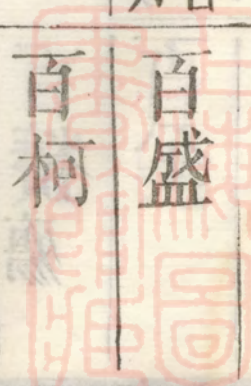 百盛
百柯